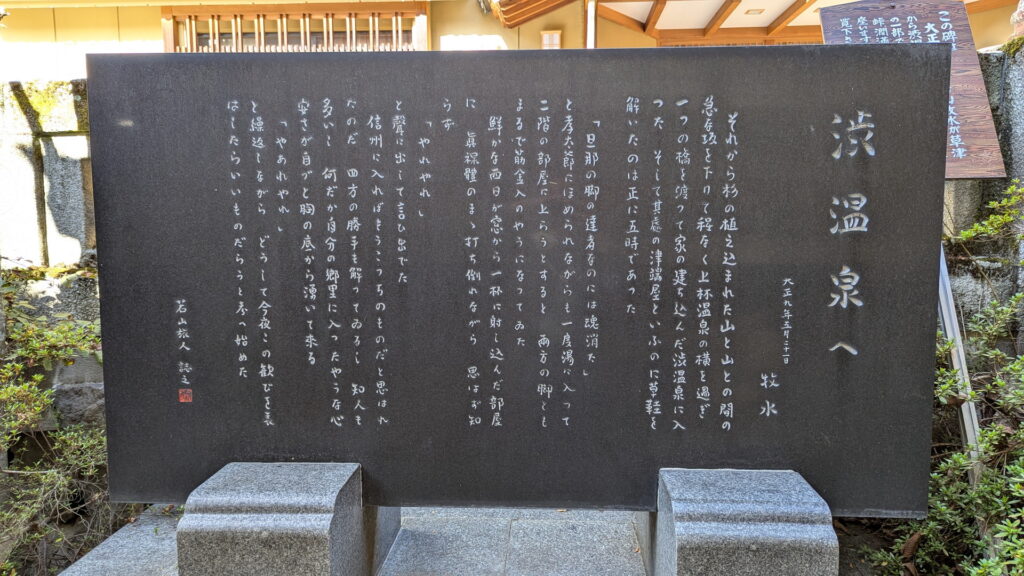 渋温泉へ
大正九年五月二十一日
牧水
それから杉の植ゑ込まれた山と山との間の
急な坂を下りて程なく上林温泉の横を過ぎ
一つの橋を渡つて家の建ち込んだ渋温泉に入
つた そして其處の津端屋といふのに草鞋を
解いたのは正に五時であつた
「旦那の脚の達者なのには魂消た」
と孝太郎にほめられながらも一度湯に入つて
二階の部屋に上らうとすると 両方の脚とも
まるで筋金入のやうになつてゐた
鮮かな西日が窓から一杯に射し込んだ部屋
に 眞裸體のまゝ打ち倒れながら 思はず知
らず
「やれやれ」
と聲に出して言ひ出でた
信州に入ればもうこつちのものだと思はれ
たのだ 四方の勝手も解つてゐるし 知人も
多いし 何だか自分の郷里に入つたやうな心
安さが自づと胸の底から湧いて来る
「やあれやれ」
と繰返しながら どうして今夜この歓びを表
はしたらいいものだらうと考へ始めた
この碑は
大正
から渋